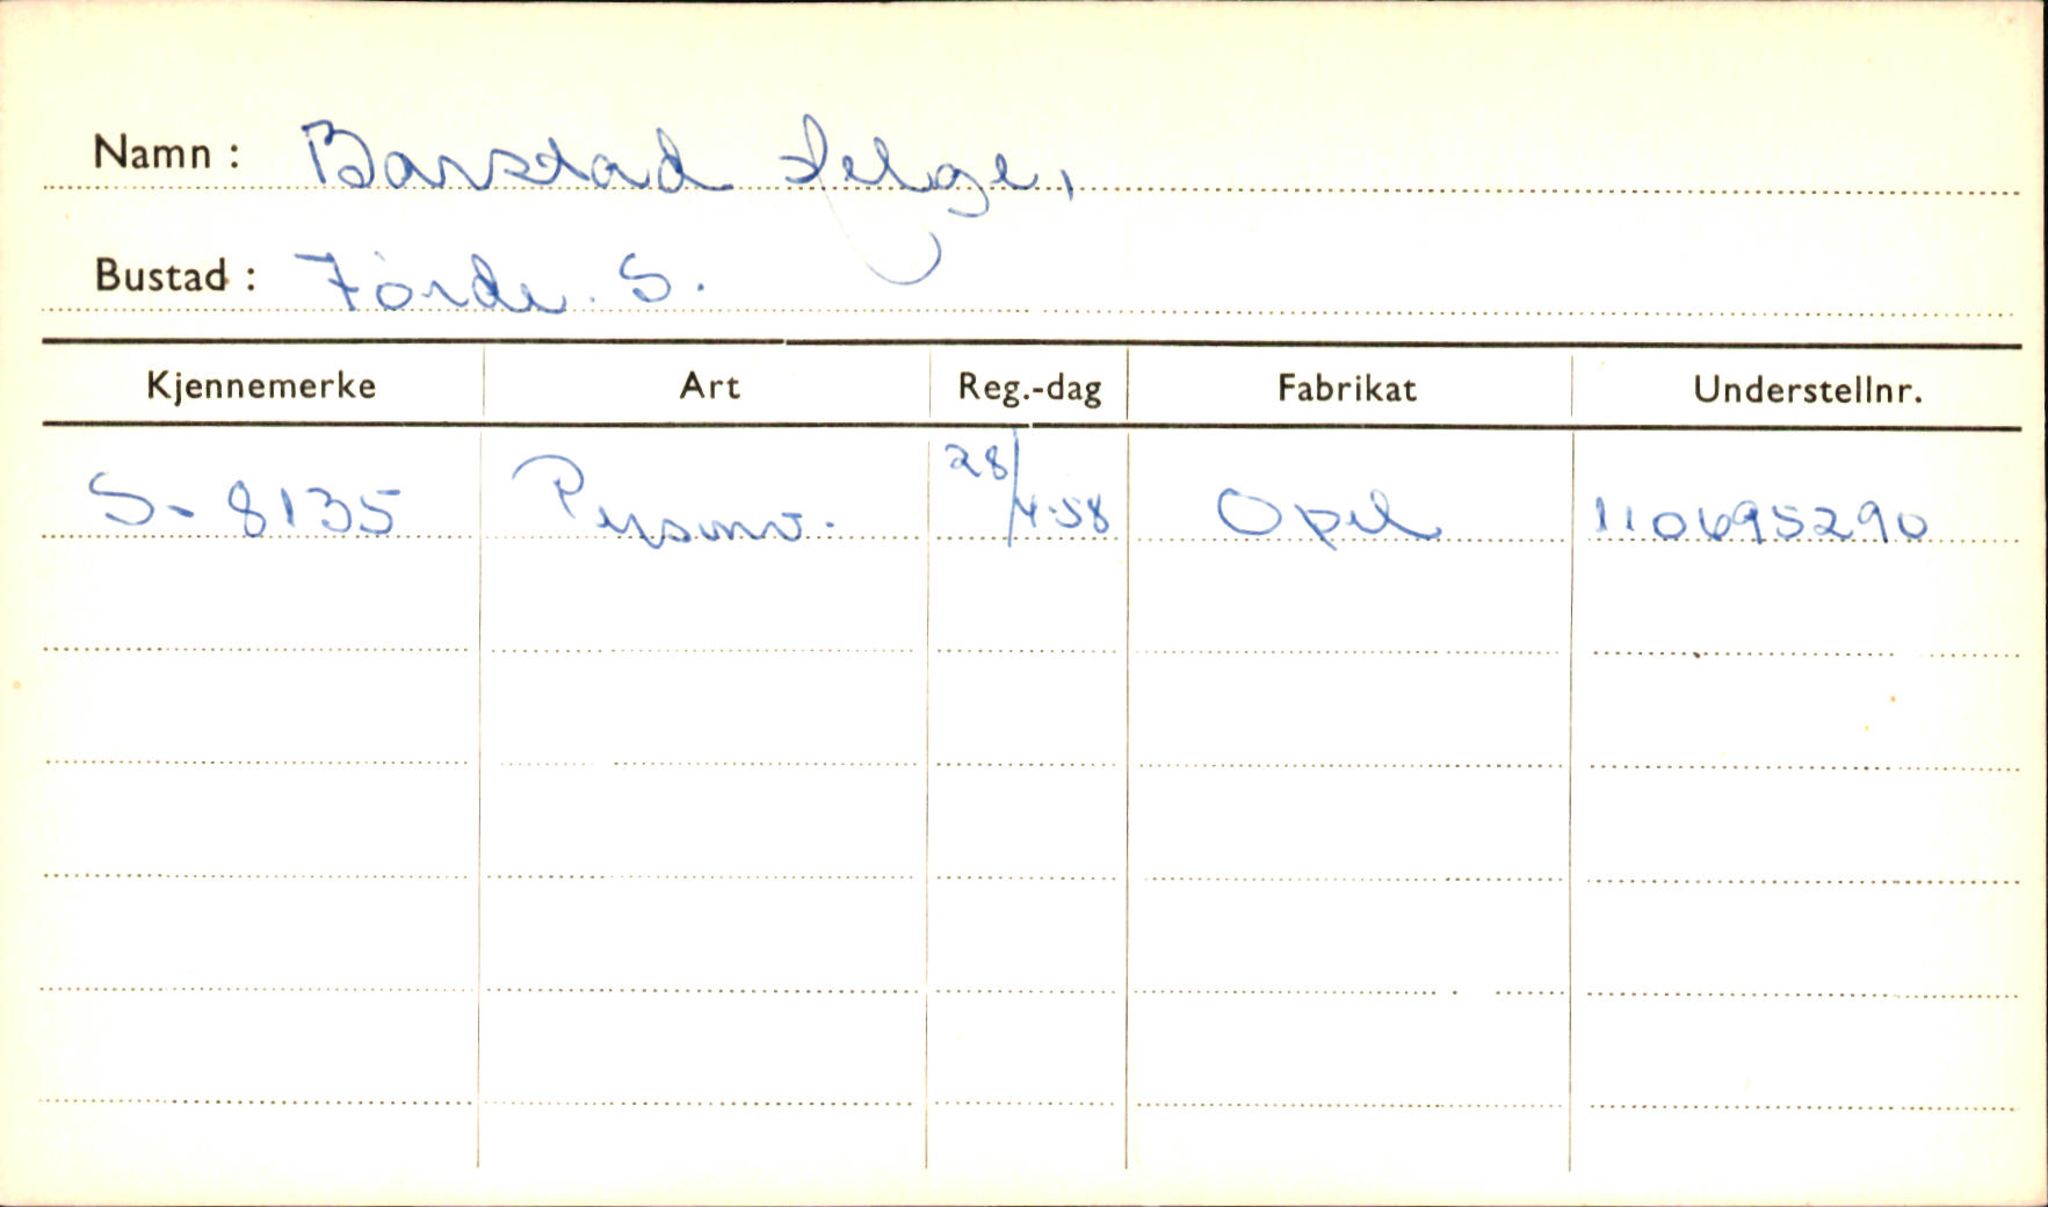 Namn : Barstad Helge,
Bustad : Förde. S.
Kjennemerke Art Reg.-dag Fabrikat Understellnr.
S- 8135 Personv. 28/4-58 Opel 110695290